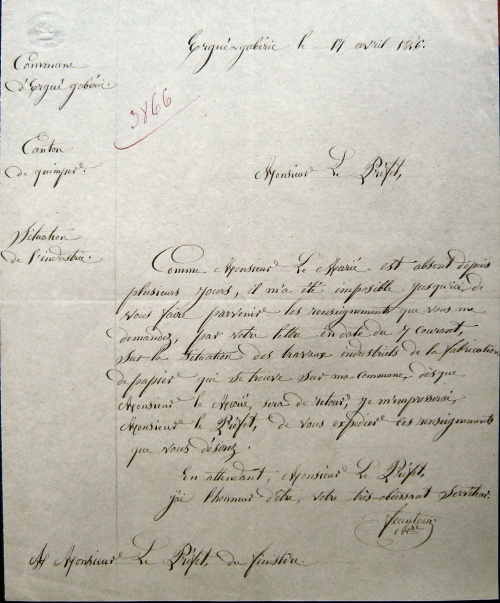 Ergué-gabéric le 17 avril 1846.
Commune
d'Ergué gabéric.
3866
Canton
de quimper.
Monsieur Le Préfet,
Situation
de l'industrie.
Comme Monsieur Le Mairie est absent depuis
plusieurs jours, il m'a été imposible jusqu'ici de
vous faire parvenir les renseignements que vous me
demandez, par votre lettre en date du 7 courant,
sur la situation des travaux industriels de la fabrication
de papier qui se trouve sur ma commune, dès que
Monsieur le Maire, sera de retour, je m'empresserai,
Monsieur le Préfet, de vous expédier ces renseignements
que vous désirez.
En attendant, Monsieur Le Préfet,
j'ai l'honneur d'être, votre très-obéissant serviteur.
A Monsieur Le Préfet, du finistère.